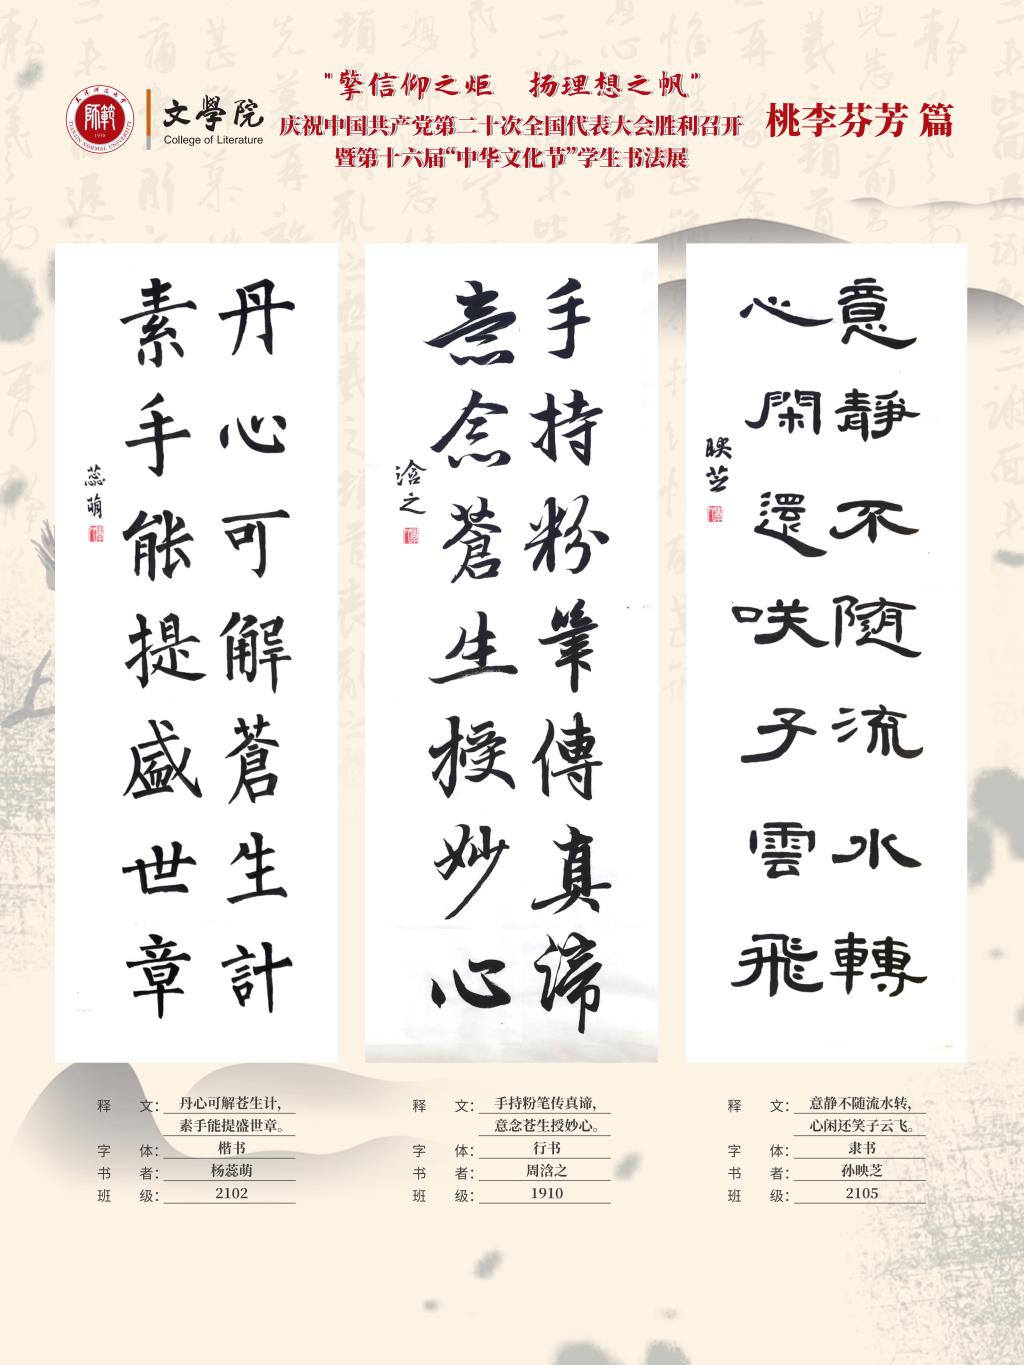 师範
天津师范大学
1958
TIANJIN NORMAL UNIVERSITY
文學院
College of Literature
"擎信仰之炬 扬理想之帆"
庆祝中国共产党第二十次全国代表大会胜利召开
暨第十六届“中华文化节”学生书法展
桃李芬芳 篇
丹心可解蒼生計
素手能提盛世章
蕊萌
手持粉筆傳真諦
意念蒼生授妙心
浛之
意靜不随流水轉
心閑還咲子雲飛
映芝
释 文： 丹心可解苍生计，
素手能提盛世章。
字 体： 楷书
书 者： 杨蕊萌
班 级： 2102
释 文： 手持粉笔传真谛，
意念苍生授妙心。
字 体： 行书
书 者： 周浛之
班 级： 1910
释 文： 意静不随流水转，
心闲还笑子云飞。
字 体： 隶书
书 者： 孙映芝
班 级： 2105